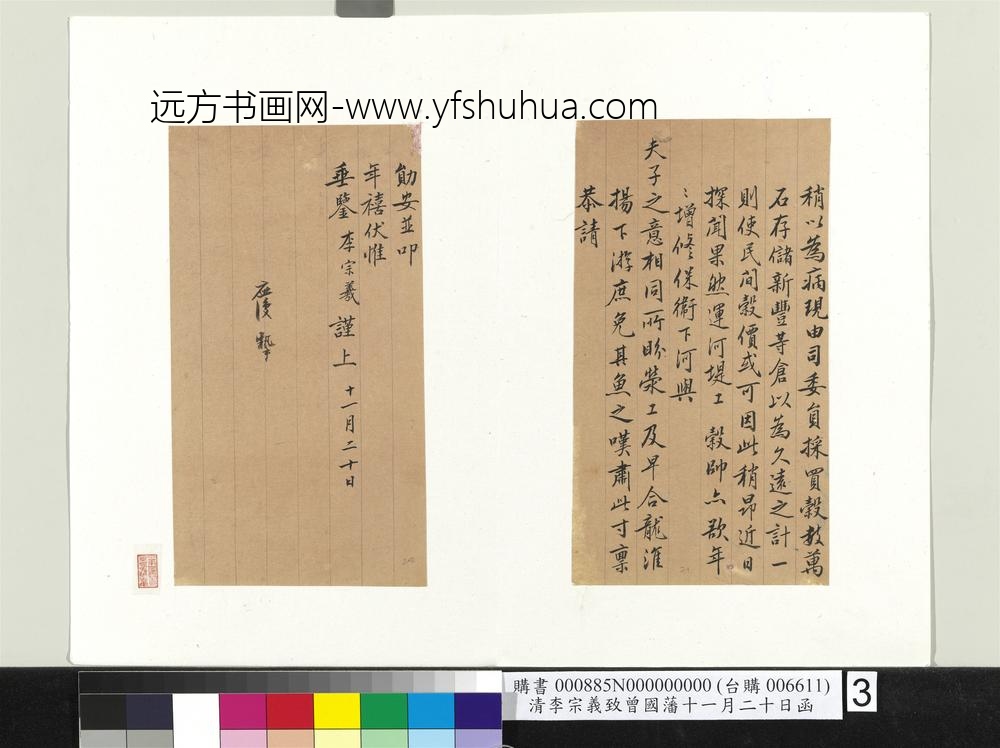 远方书画网-www.yfshuhua.com
稍以為病現由司委員採買穀數萬
石存儲新豐等倉以為久遠之計一
則使民間穀價或可因此稍昂近日
探聞果然運河堤工穀帥亦歆年
〻增修保衛下河與
夫子之意相同所盼滎工及早合龍淮
揚下游庶免其魚之嘆肅此寸稟
恭請
勛安並叩
年禧伏惟
垂鑒 李宗羲 謹上 十一月二十日
購書 000885N000000000 (台購 006611)
清李宗義致曾國藩十一月二十日函
3